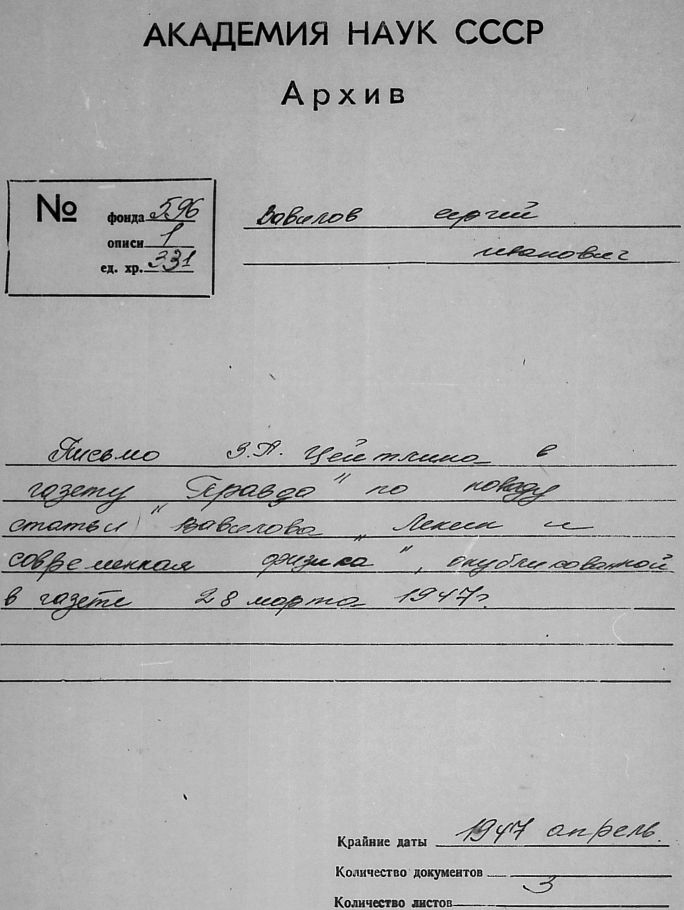 АКАДЕМИЯ НАУК СССР
Архив
№
фонда 596
описи 1
ед. хр. 331
Вавилов Сергей
Иванович
Письмо З.А. Цейтлина в
газету "Правда" по поводу
статьи Вавилова "Ленин и
современная физика", опубликованной
в газете 28 марта 1947г.
Крайние даты 1947 апрель.
Количество документов
Количество листов 3